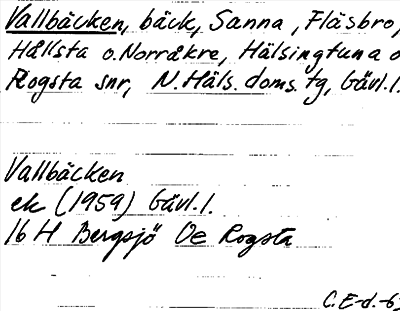 Vallbäcken, bäck, Sanna, Fläsbro,
Hållsta o. Norråkre, Hälsingtuna o
Rogsta snr, N. Häls. doms. tg, Gävl.l.
Vallbäcken
ek (1959) Gävl.l.
16 H Bergsjö Ue Rogsta
C.E-d.-6